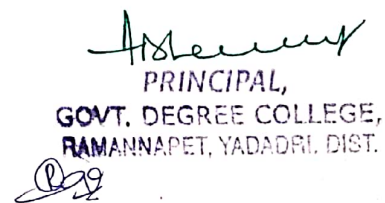 PRINCIPAL,
GOVT. DEGREE COLLEGE,
RAMANNAPET, YADADRI. DIST.